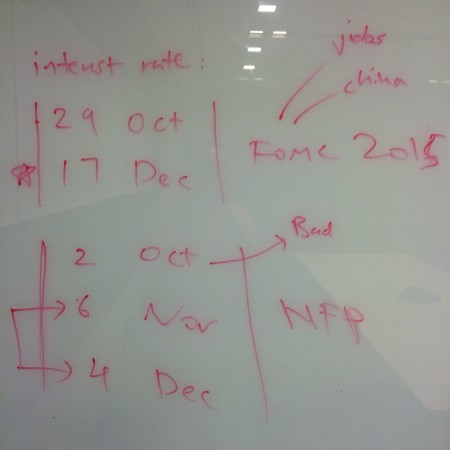 interest rate :
jobs
china
29 Oct
17 Dec
FOMC 2015
2 Oct
Bad
6 Nov
NFP
4 Dec